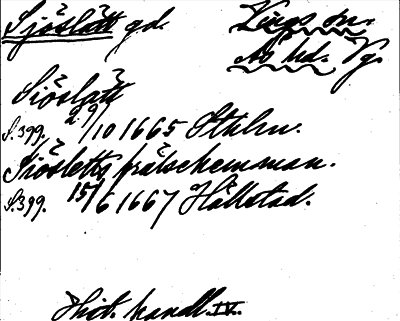 Sjöslätt gd. Kinds sn.
Ås hd. Vg.
Siöslatt
S. 399. 29/10 1665 Sthlm.
Siösletts frälsehemman.
S. 399. 15/6 1667 Hållstad.
Hist. handl. IV.